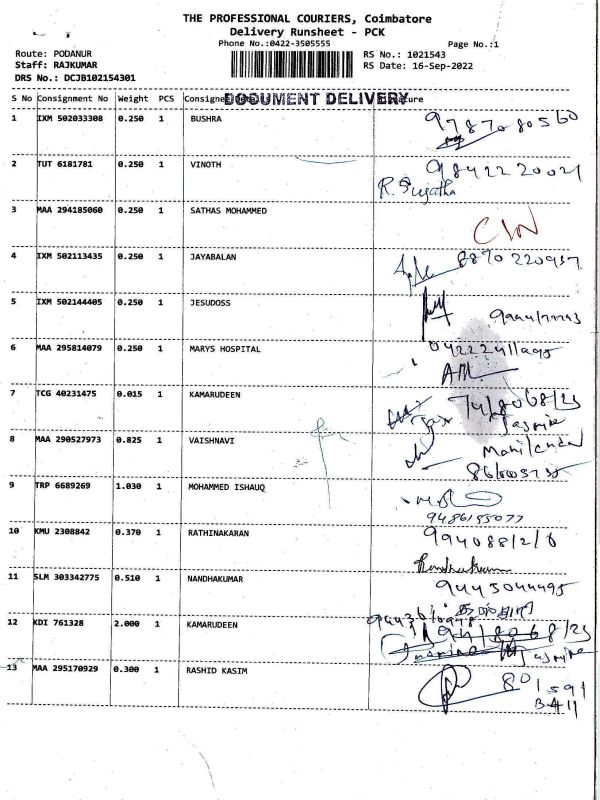 THE PROFESSIONAL COURIERS, Coimbatore
Delivery Runsheet - PCK
Phone No.:0422-3505555
Page No.:1
Route: PODANUR
RS No.: 1021543
Staff: RAJKUMAR
RS Date: 16-Sep-2022
DRS No.: DCJB102154301
S No Consignment No Weight PCS Consignee
DOCUMENT DELIVERY
1 IXM 502033308 0.250 1 BUSHRA 9787080560
2 TUT 6181781 0.250 1 VINOTH 9842220021
R. Sujatha
3 MAA 294185060 0.250 1 SATHAS MOHAMMED
4 IXM 502113435 0.250 1 JAYABALAN 8870220937
5 IXM 502144405 0.250 1 JESUDOSS
6 MAA 295814079 0.250 1 MARYS HOSPITAL
7 TCG 40231475 0.015 1 KAMARUDEEN
Jasmine
8 MAA 290527973 0.825 1 VAISHNAVI
9 TRP 6689269 1.030 1 MOHAMMED ISHAUQ
10 KMU 2308842 0.370 1 RATHINAKARAN
11 SLM 303342775 0.510 1 NANDHAKUMAR 9445044495
12 KDI 761328 2.000 1 KAMARUDEEN
Jasmine
13 MAA 295170929 0.300 1 RASHID KASIM